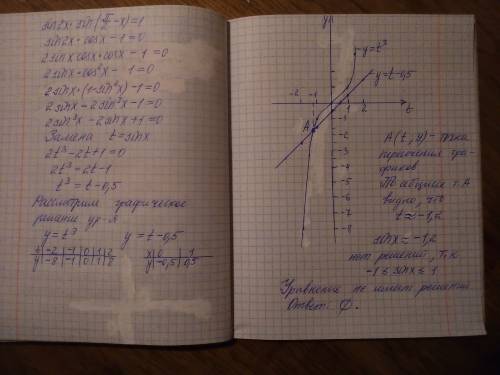 sin2x · sin(π/2 - x) = 1
sin2x · cosx - 1 = 0
2sinx cosx · cosx - 1 = 0
2sinx · cos²x - 1 = 0
2sinx · (1-sin²x) - 1 = 0
2sinx - 2sin³x - 1 = 0
2sin³x - 2sinx + 1 = 0
Замена t = sinx
2t³ - 2t + 1 = 0
2t³ = 2t - 1
t³ = t - 0,5
Рассмотрим графическое
решение ур-я
y = t³ y = t - 0,5
t -2 -1 0 1 2
y -8 -1 0 1 8
x 0 1
y -0,5 0,5
y
y = t³
y = t - 0,5
-2 -1 1 2 t
A
-1
-2
-3
-4
-5
-6
-7
-8
A(t, y) - точка
пересечения гра-
фиков
видно, что
t ≈ -1,2
sinx ≈ -1,2
нет решений, т.к.
-1 ≤ sinx ≤ 1
Уравнение не имеет решений
Ответ: ∅.